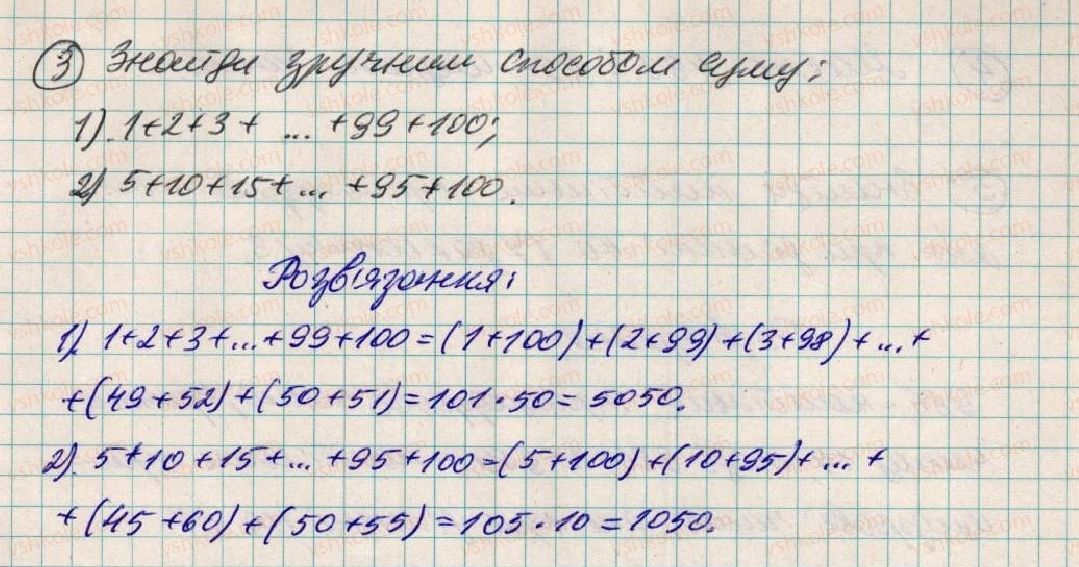 3 Знайди зручним способом суму:
1). 1+2+3+ ... +99+100;
2) 5+10+15+... +95+100.
Розв'язання:
1). 1+2+3+...+99+100=(1+100)+(2+99)+(3+98)+...+
+(49+52)+(50+51)=101·50=5050.
2). 5+10+15+... +95+100=(5+100)+(10+95)+...+
+(45+60)+(50+55)=105·10=1050.